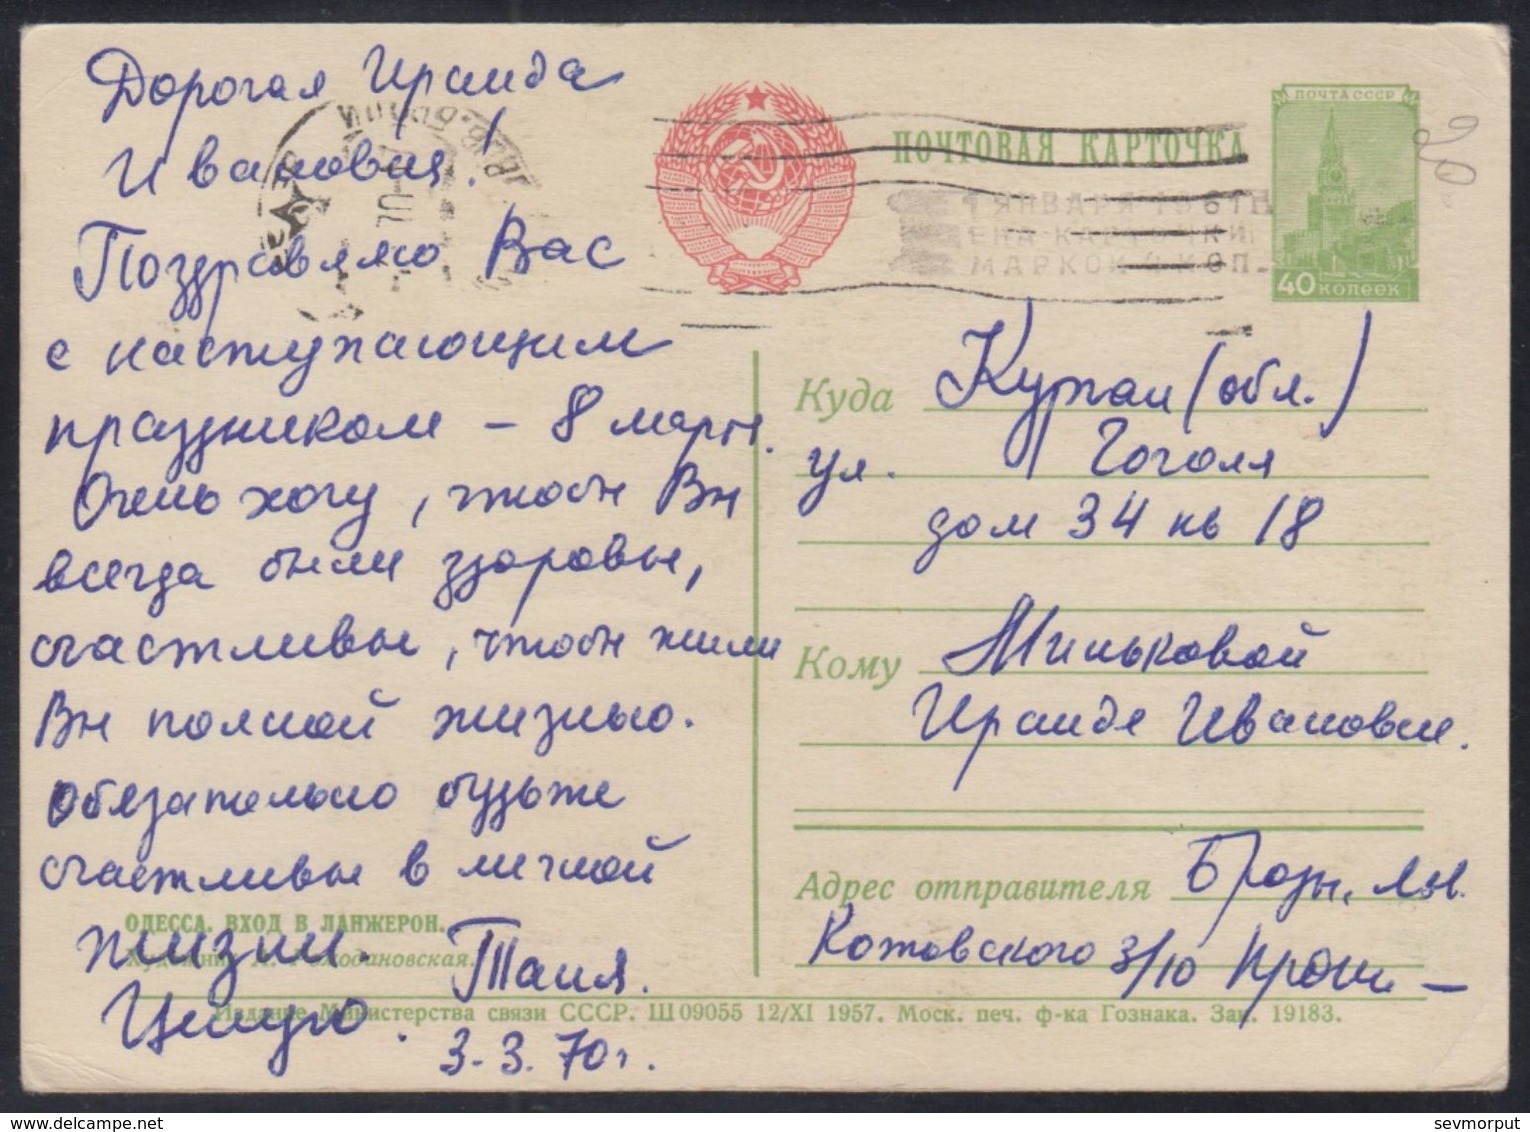 Дорогая Ираида
Ивановна!
Поздравляю Вас
с наступающим
праздником – 8 марта.
Очень хочу, чтобы Вы
всегда были здоровы,
счастливы, чтобы жили
Вы полной жизнью.
Обязательно будьте
счастливы в личной
жизни. Таня.
Целую.
3.3.70г.
ОДЕССА. ВХОД В ЛАНЖЕРОН.
ПОЧТОВАЯ КАРТОЧКА
ПОЧТА СССР
40 КОПЕЕК
1 ЯНВАРЯ 1961
ЕНА КАРТОЧКИ
МАРКОЙ 4 КОП.
20
Куда Курган (обл.)
ул. Гоголя
дом 34 кв 18
Кому Миньковой
Ираиде Ивановне.
Адрес отправителя Броды, Льв.
Котовского 3/10
Издание Министерства связи СССР. Ш 09055 12/XI 1957. Моск. печ. ф-ка Гознака. Зак. 19183.
sevmorput